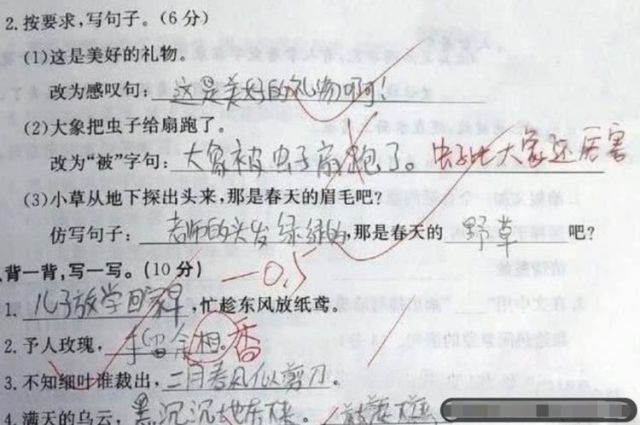 2.按要求,写句子。(6分)
(1)这是美好的礼物。
改为感叹句:这是美好的礼物啊!
(2)大象把虫子给扇跑了。
改为“被”字句:大象被虫子扇跑了。虫子比大象还厉害
(3)小草从地下探出头来,那是春天的眉毛吧?
仿写句子:老师的头发绿绿的,那是春天的野草吧?
背一背,写一写。(10分) -0.5
1.儿子放学回家早,忙趁东风放纸鸢。
2.予人玫瑰,手留余相。香
3.不知细叶谁裁出,二月春风似剪刀。
4.满天的乌云,黑沉沉地